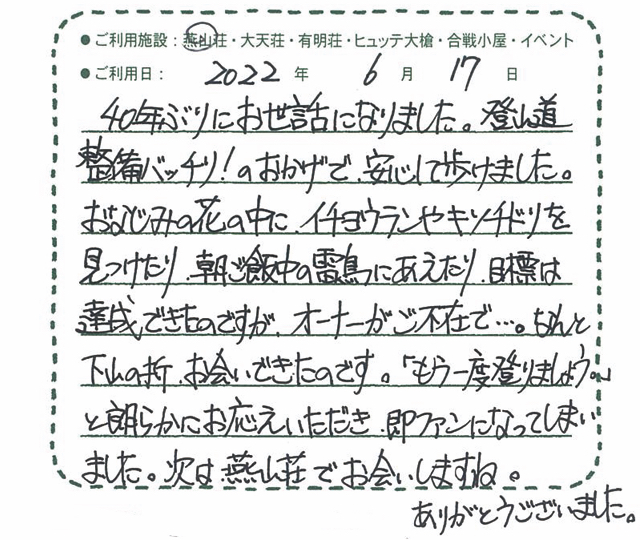 ● ご利用施設：燕山荘・大天荘・有明荘・ヒュッテ大槍・合戦小屋・イベント
● ご利用日： 2022 年 6 月 17 日
40年ぶりにお世話になりました。登山道
整備バッチリ！のおかげで、安心して歩けました。
おなじみの花の中に、イチヨウランやキソチドリを
見つけたり、朝ご飯中の雷鳥にあえたり、目標は
達成できたのですが、オーナーがご不在で…。なんと
下山の折、お会いできたのです。「もう一度登りましょう。」
と朗らかにお応えいただき、即ファンになってしまい
ました。次は燕山荘でお会いしますね。
ありがとうございました。